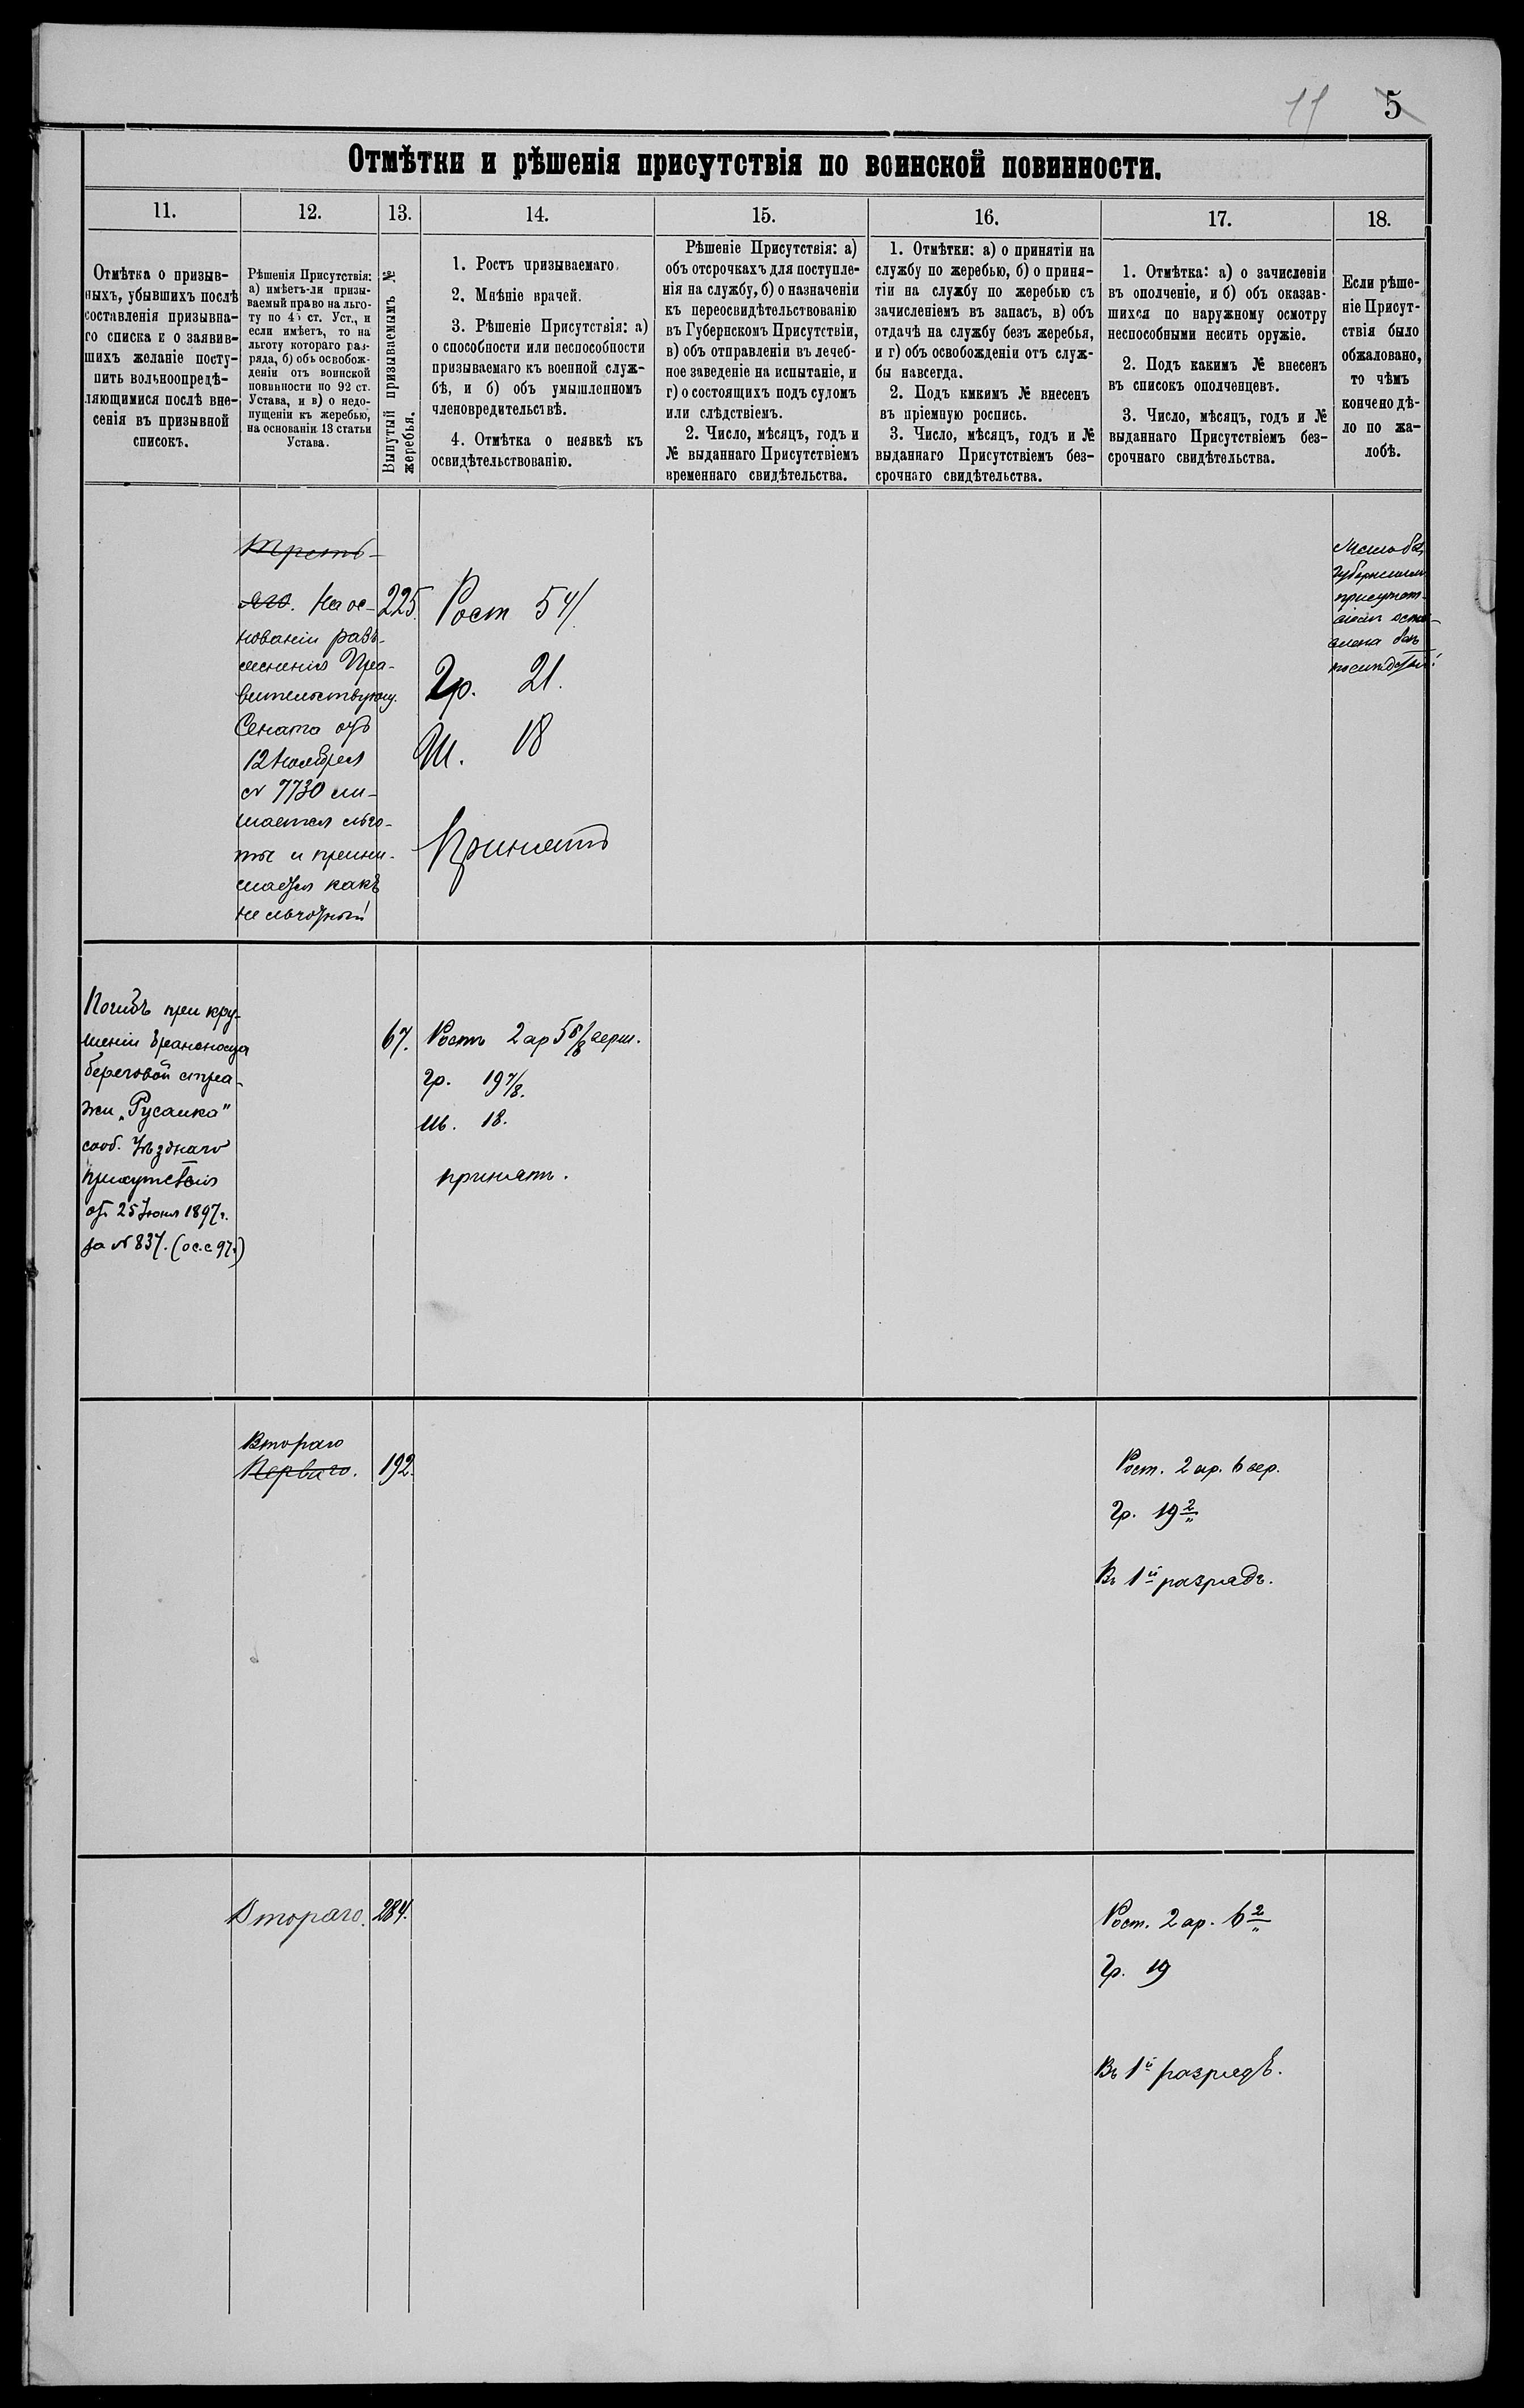 11 5
Отмѣтки и рѣшенія присутствія по воинской повинности.
11.
12.
13.
14.
15.
16.
17.
18.
Отмѣтка о призыв-
ныхъ, убывшихъ послѣ
составленія призывна-
го списка и о заявив-
шихъ желаніе посту-
пить вольноопредѣ-
ляющимися послѣ вне-
сенія въ призывной
списокъ.
Рѣшенія Присутствія:
а) имѣетъ-ли призы-
ваемый право на льго-
ту по 45 ст. Уст., и
если имѣетъ, то на
льготу котораго раз-
ряда, б) объ освобож-
деніи отъ воинской
повинности по 92 ст.
Устава, и в) о недо-
пущеніи къ жеребью,
на основаніи 13 статьи
Устава.
Вынутый призываемымъ №
жеребья.
1. Ростъ призываемаго.
2. Мнѣніе врачей.
3. Рѣшеніе Присутствія: а)
о способности или неспособности
призываемаго къ военной служ-
бѣ, и б) объ умышленномъ
членовредительствѣ.
4. Отмѣтка о неявкѣ къ
освидѣтельствованію.
Рѣшеніе Присутствія: а)
объ отсрочкахъ для поступле-
нія на службу, б) о назначеніи
къ переосвидѣтельствованію
въ Губернскомъ Присутствіи,
в) объ отправленіи въ лечеб-
ное заведеніе на испытаніе, и
г) о состоящихъ подъ судомъ
или слѣдствіемъ.
2. Число, мѣсяцъ, годъ и
№ выданнаго Присутствіемъ
временнаго свидѣтельства.
1. Отмѣтки: а) о принятіи на
службу по жеребью, б) о приня-
тіи на службу по жеребью съ
зачисленіемъ въ запасъ, в) объ
отдачѣ на службу безъ жеребья,
и г) объ освобожденіи отъ служ-
бы навсегда.
2. Подъ кмкимъ № внесенъ
въ пріемную роспись.
3. Число, мѣсяцъ, годъ и №
выданнаго Присутствіемъ без-
срочнаго свидѣтельства.
1. Отмѣтка: а) о зачисленіи
въ ополченіе, и б) объ оказав-
шихся по наружному осмотру
неспособными несить оружіе.
2. Подъ какимъ № внесенъ
въ списокъ ополченцевъ.
3. Число, мѣсяцъ, годъ и №
выданнаго Присутствіемъ без-
срочнаго свидѣтельства.
Если рѣше-
ніе Присут-
ствія было
обжаловано,
то чѣмъ
кончено дѣ-
ло по жа-
лобѣ.
Треть-
яго. На ос-
нованіи разъ-
ясненія Пра-
вительствующ.
Сената отъ
12 Ноября
№ 7730 ли-
шается льго-
ты и прини-
мается какъ
не льготный
225.
Рост 5 4/
Гр. 21.
Ш. 18
Принятъ
Жалоба
Губернским
присутст-
віемъ остав-
лена безъ
послѣдствій
Погибъ при кру-
шеніи броненосца
береговой стра-
жи „Русалка"
сооб. Уѣзднаго
присутствія
отъ 25 Іюня 1897 г.
за № 837. (ос. с 97 г.)
67.
Ростъ 2 ар 5 5/8 верш.
Гр. 19 7/8.
Ш. 18.
принятъ.
Втораго
Перваго.
192.
Рост. 2 ар. 6 вер.
Гр. 19 2/"
Въ 1й разрядъ.
Втораго.
284.
Рост. 2 ар. 6 2/"
Гр. 19
Въ 1й разрядъ.